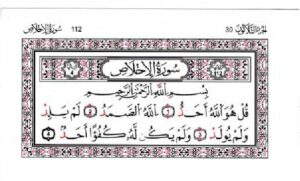 سُورَةُ الإِخْلَاصِ 112 30 الجزء الثلاثون
سُورَةُ الإِخْلَاصِ
بِسْمِ اللَّهِ الرَّحْمَٰنِ الرَّحِيمِ
قُلْ هُوَ اللَّهُ أَحَدٌ ١ اللَّهُ الصَّمَدُ ٢ لَمْ يَلِدْ
وَلَمْ يُولَدْ ٣ وَلَمْ يَكُن لَّهُ كُفُوًا أَحَدٌ ٤